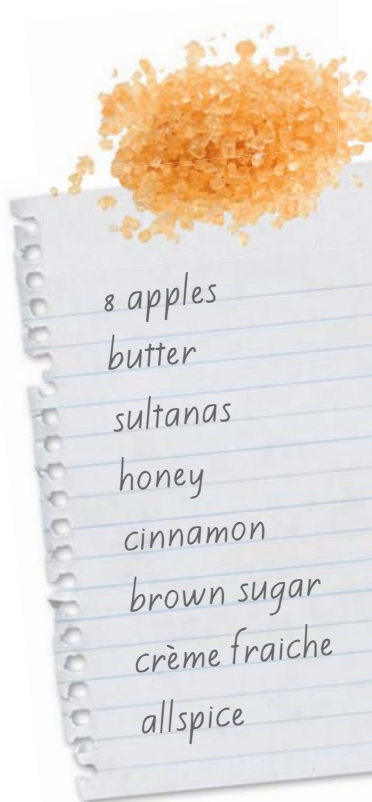 8 apples
butter
sultanas
honey
cinnamon
brown sugar
crème fraiche
allspice